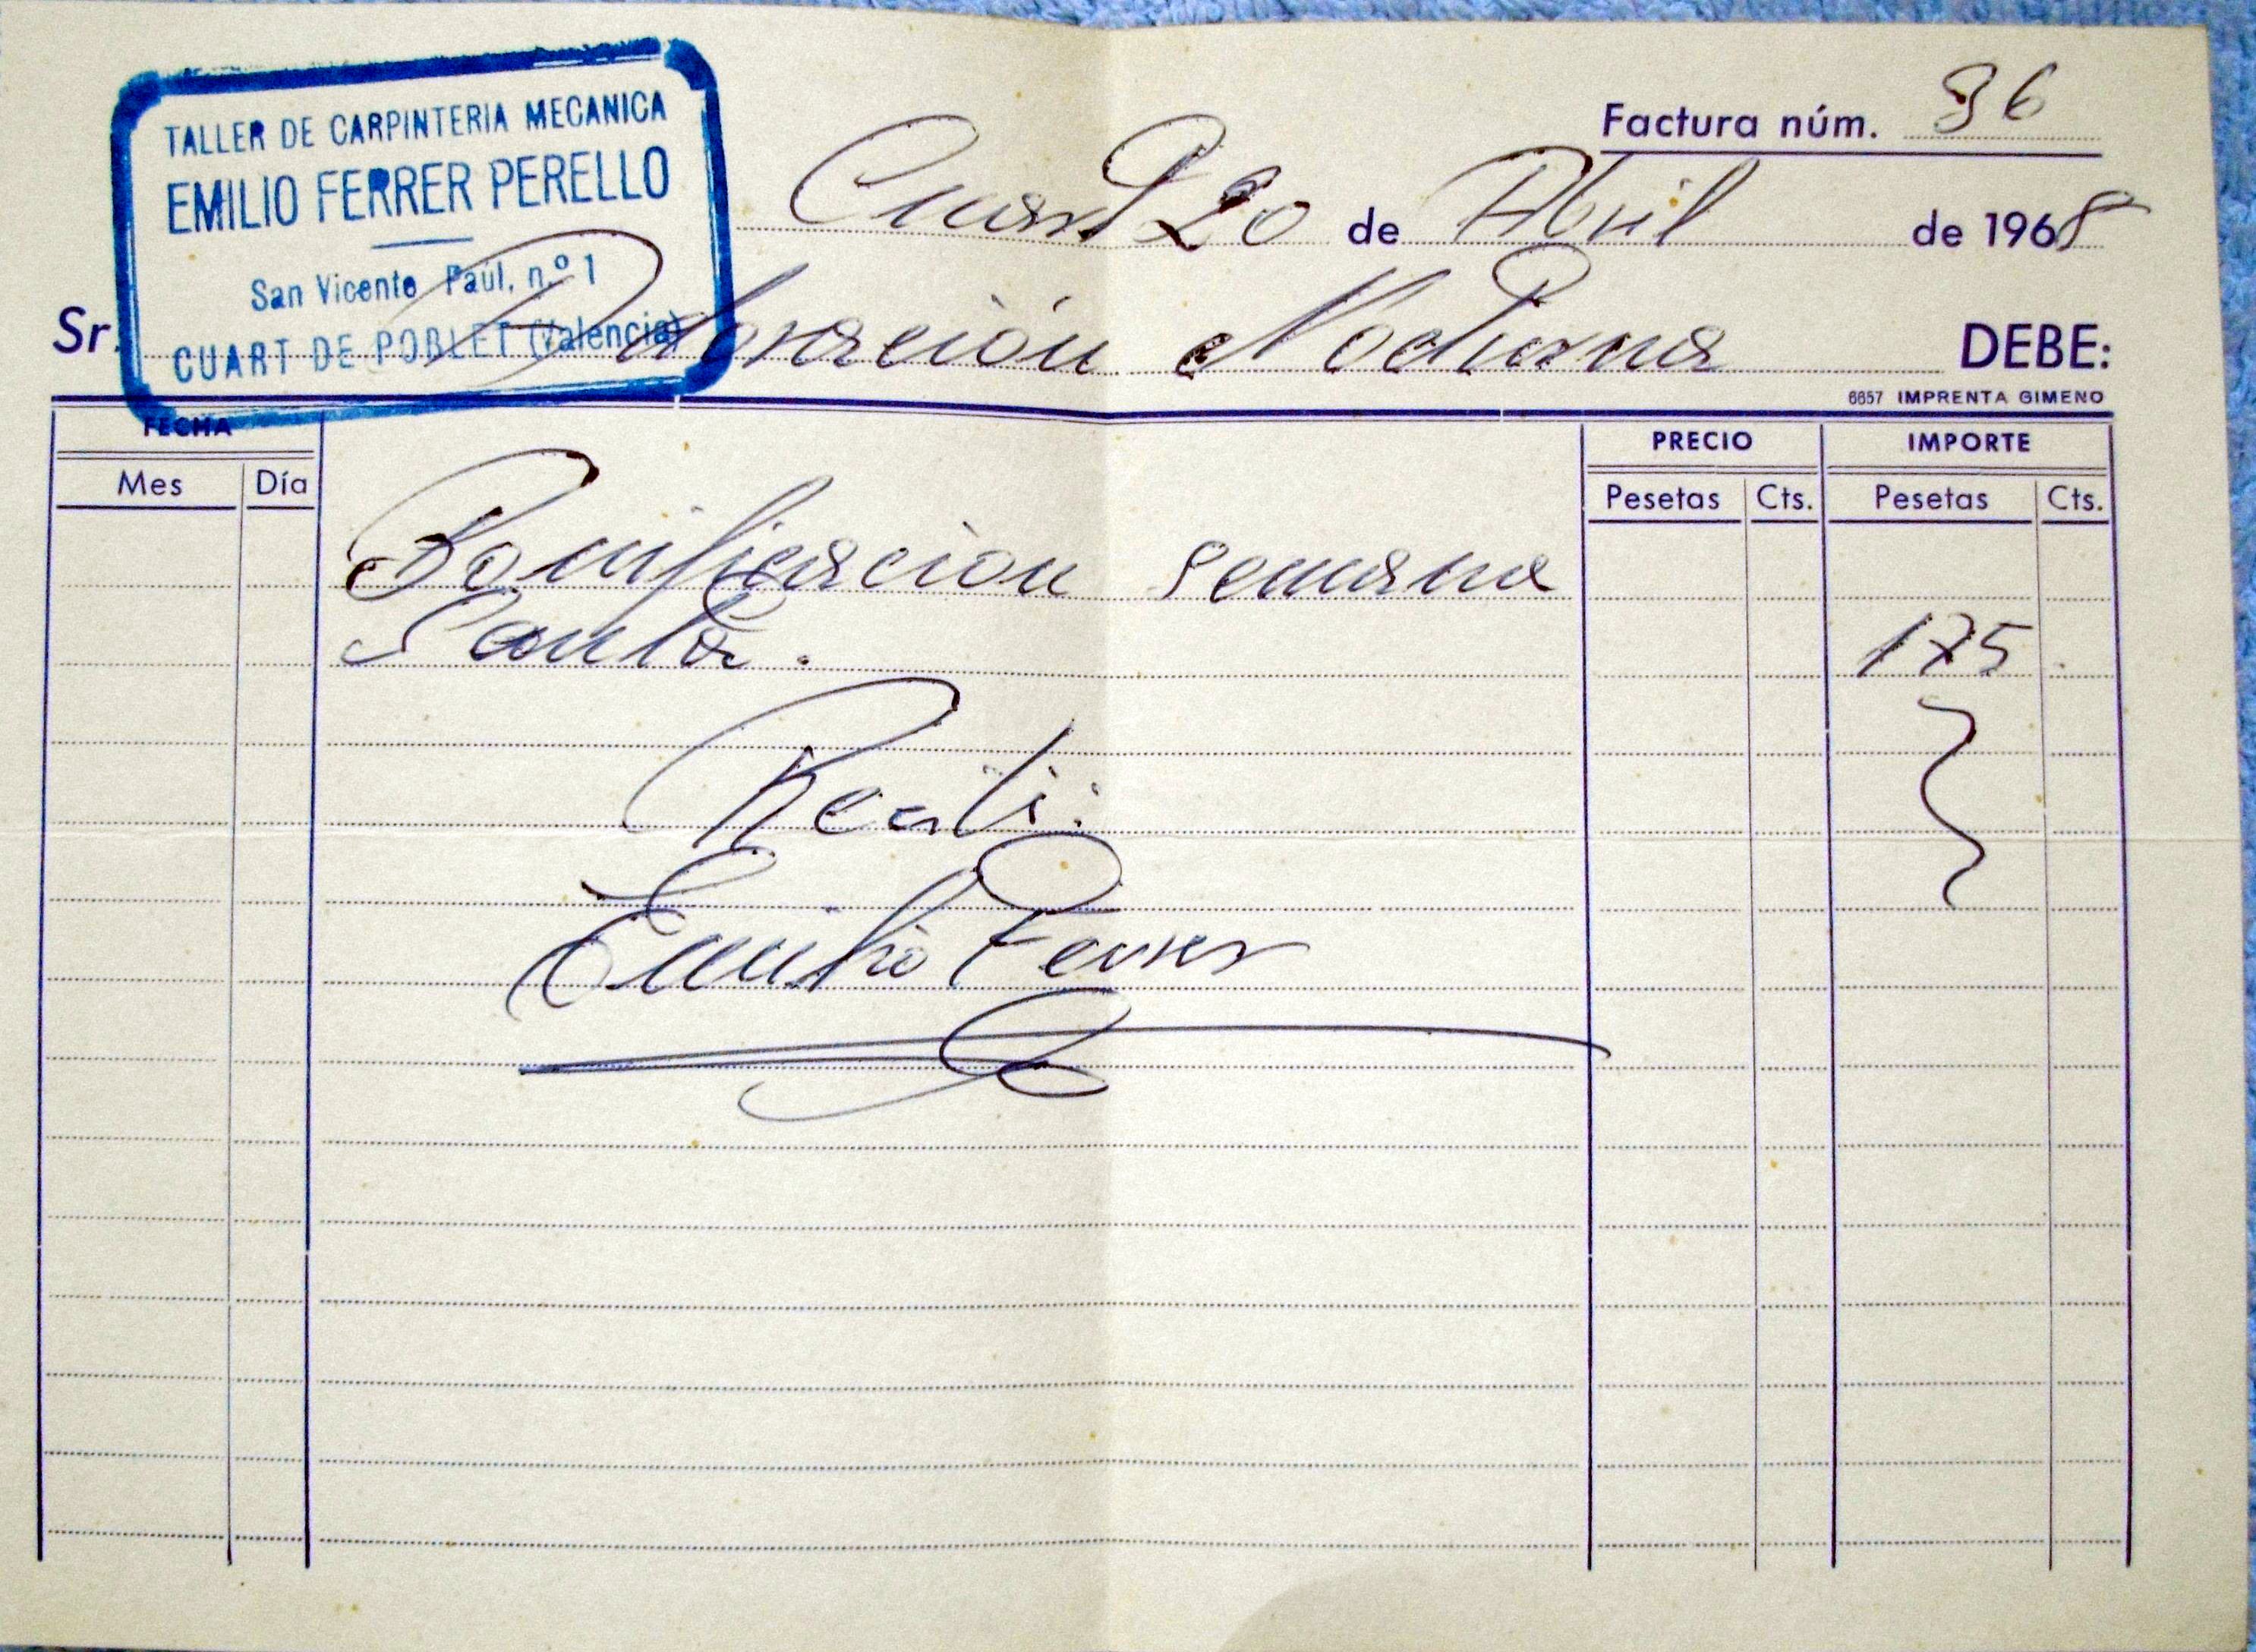 TALLER DE CARPINTERIA MECANICA
EMILIO FERRER PERELLO
San Vicente Paúl, n.º 1
CUART DE POBLET (Valencia)
Factura núm. 36
Cuart 20 de Abril de 1968
Sr. Adoración Nocturna DEBE:
6657 IMPRENTA GIMENO
FECHA PRECIO IMPORTE
Mes Día Pesetas Cts. Pesetas Cts.
Bonificacion semana
Santa. 175
Recibi:
Emilio Ferrer